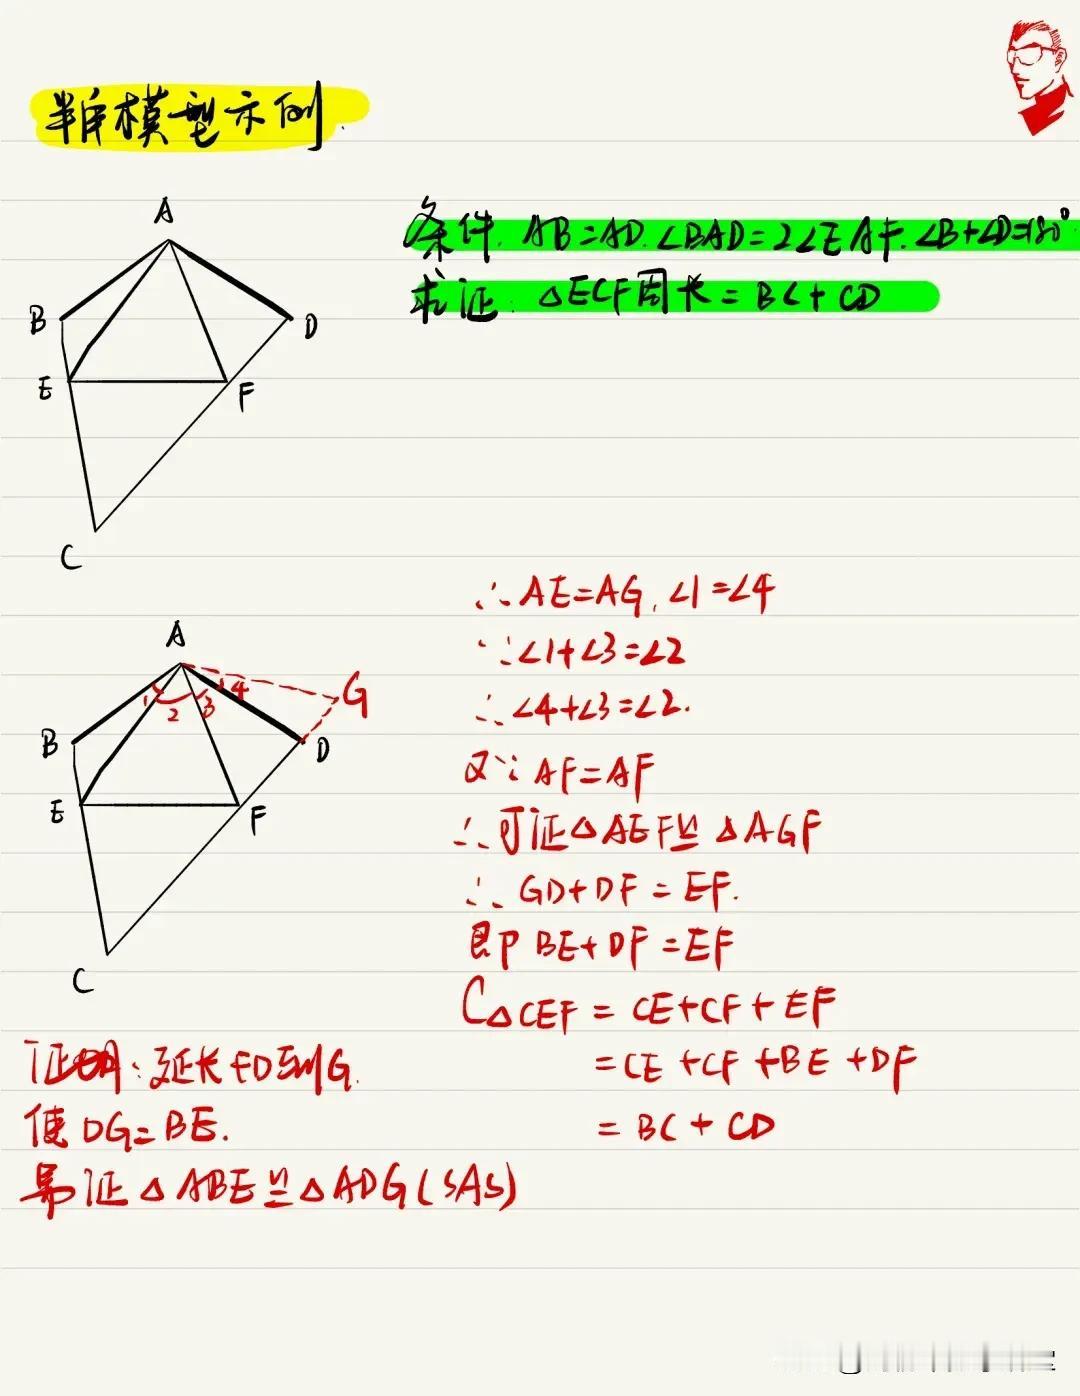 半角模型示例.
条件. AB=AD. ∠BAD=2∠EAF. ∠B+∠D=180°
求证. △ECF周长=BC+CD
A
B
D
E
F
C
∴AE=AG, ∠1=∠4
∵∠1+∠3=∠2
∴∠4+∠3=∠2.
又∵AF=AF
∴可证△AEF≌△AGF
∴GD+DF=EF.
即BE+DF=EF
C△CEF=CE+CF+EF
=CE+CF+BE+DF
=BC+CD
A
G
1
2
3
4
B
D
E
F
C
证明:延长FD到G.
使DG=BE.
易证△ABE≌△ADG(SAS)